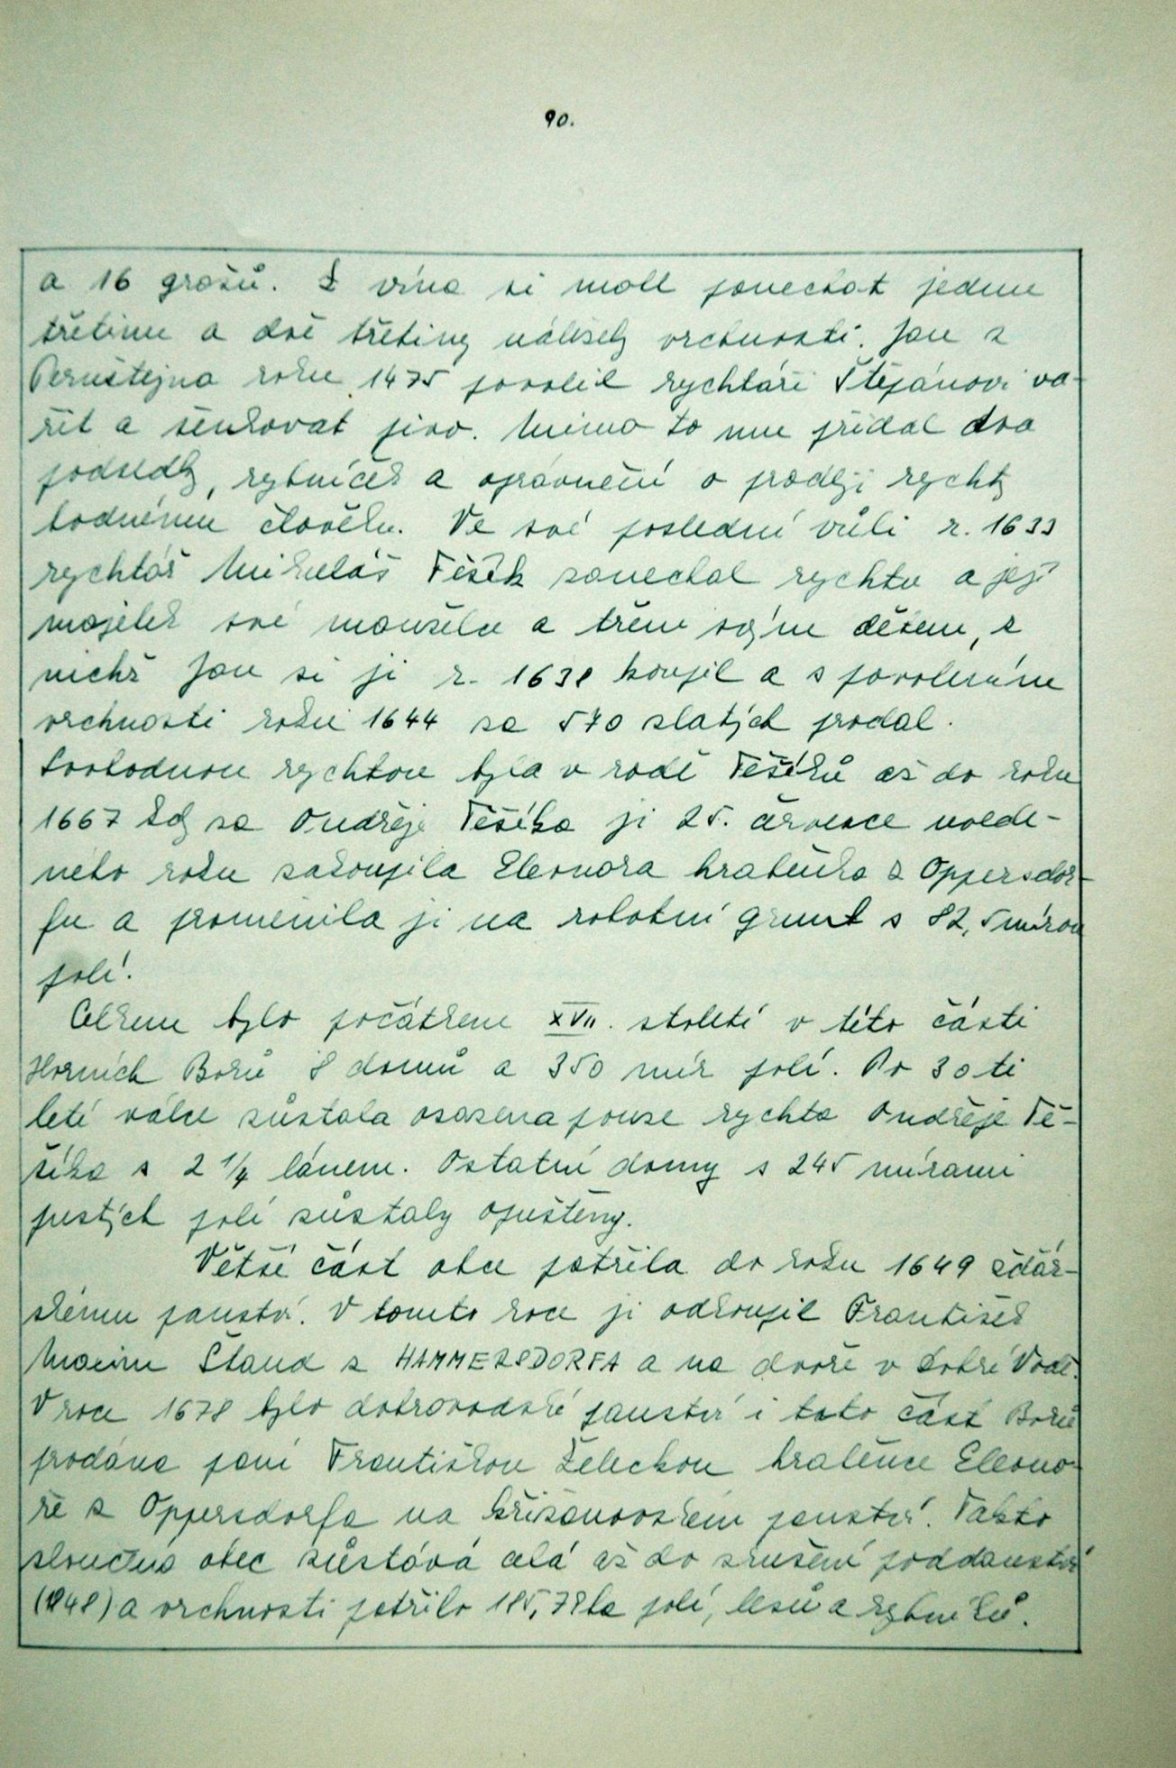 90.
a 16 grošů. Z vína si mohl ponechat jednu
třetinu a dvě třetiny náležely vrchnosti. Jan z
Pernštejna roku 1475 povolil rychtáři Štěpánovi va-
řit a šenkovat pivo. Mimo to mu přidal dva
podsedky, rybníček a oprávnění o prodeji rychty
hodnému člověku. Ve své poslední vůli r. 1633
rychtář Mikuláš Těšík zanechal rychtu a její
majetek své manželce a třem svým dětem, z
nichž Jan si ji r. 1638 koupil a s povolením
vrchnosti roku 1644 za 570 zlatých prodal.
Svobodnou rychtou byla v rodě Těšíků až do roku
1667 kdy za Ondřeje Těšíka ji 25. července uvede-
ného roku zakoupila Eleonora hraběnka z Oppersdor-
fu a proměnila ji na robotní grunt s 82,5 mírou
polí.
Celkem bylo počátkem XVII. století v této části
Horních Borů 8 domů a 350 měr polí. Po 30ti
leté válce zůstala osazena pouze rychta Ondřeje Tě-
šíka s 2 1/4 lánem. Ostatní domy s 245 mírami
pustých polí zůstaly opuštěny.
Větší část obce patřila do roku 1649 žďár-
skému panství. V tomto roce ji odkoupil František
Maxim Štand z HAMMERSDORFA a na dvoře v Dobré Vodě.
V roce 1678 bylo dobrovodské panství i tato část Borů
prodána paní Františkou Želeckou hraběnce Eleono-
ře z Oppersdorfa na křižanovském panství. Takto
sloučena obec zůstává celá až do zrušení poddanství
(1848) a vrchnosti patřilo 185,78 ha polí, lesů a rybníků.